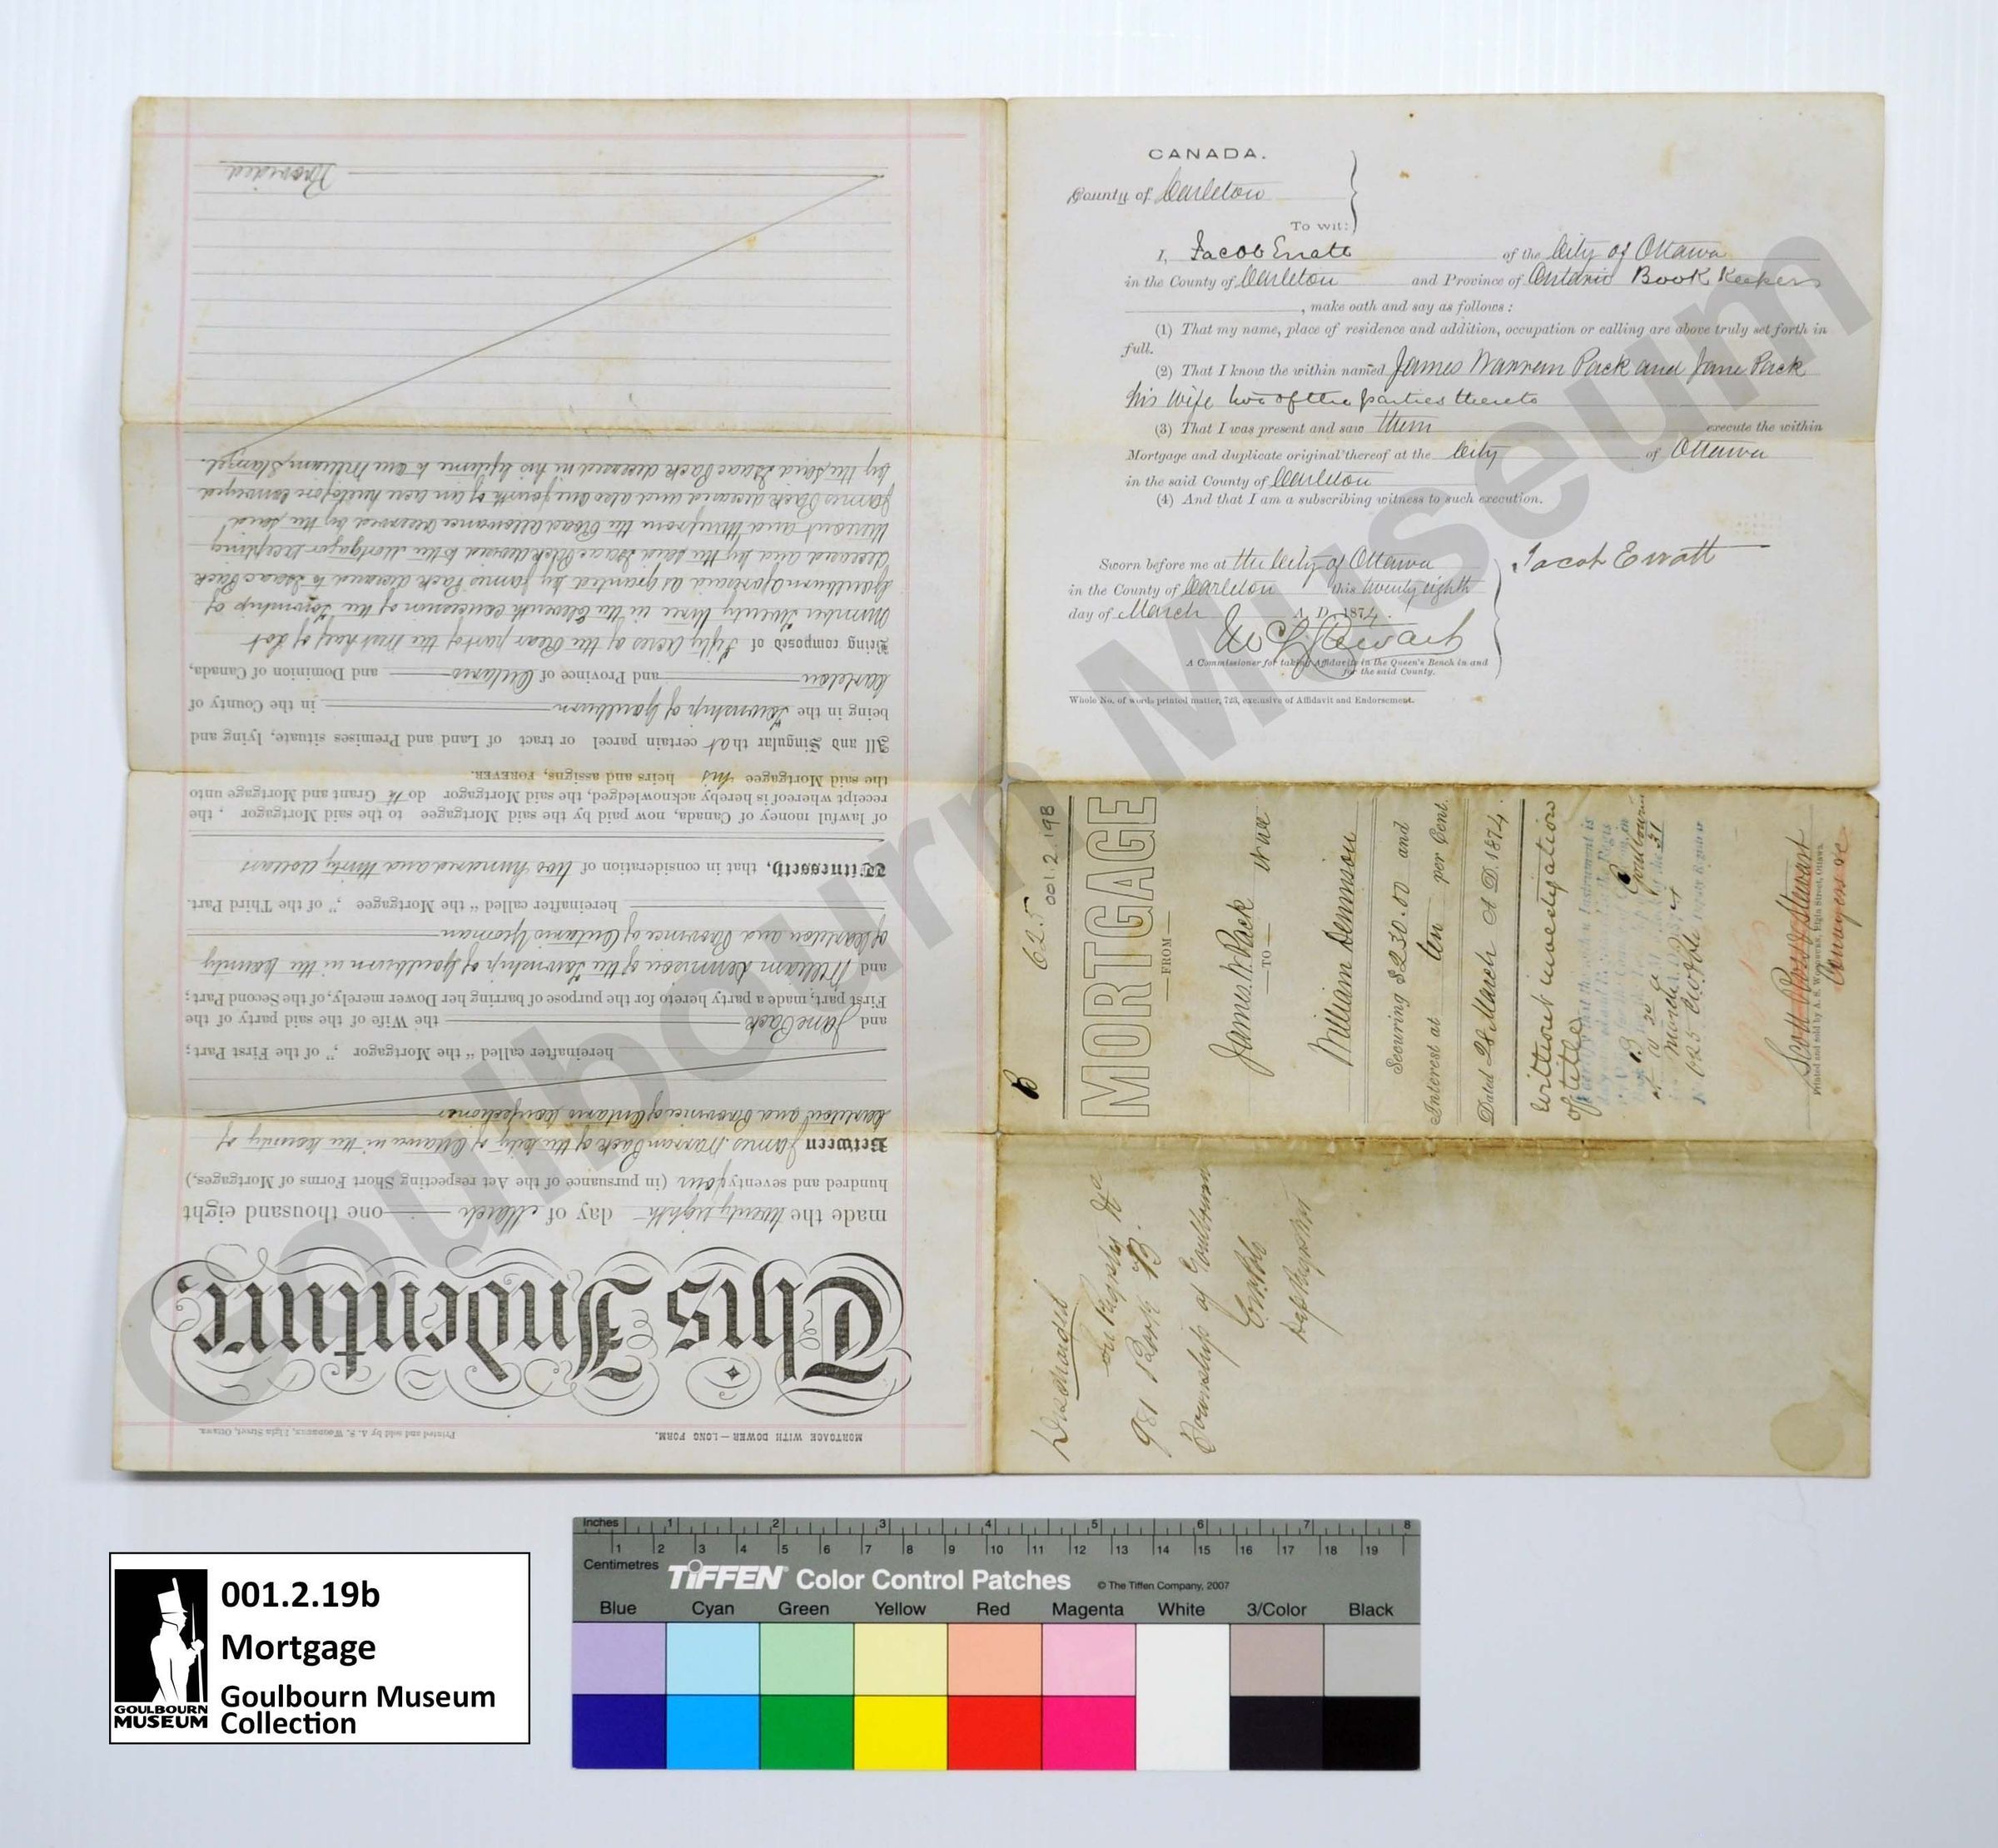 CANADA.
County of Carleton
To wit:
I, Jacob Erratt of the City of Ottawa
in the County of Carleton and Province of Ontario Book Keeper
, make oath and say as follows:
(1) That my name, place of residence and addition, occupation or calling are above truly set forth in
full.
(2) That I know the within named James Warren Pack and Jane Pack
his wife two of the parties thereto
(3) That I was present and saw them execute the within
Mortgage and duplicate original thereof at the City of Ottawa
in the said County of Carleton
(4) And that I am a subscribing witness to such execution.
Sworn before me at the City of Ottawa
in the County of Carleton this twenty eighth
day of March A. D. 1874.
Jacob Erratt
Stewart
A Commissioner for taking Affidavits in the Queen's Bench in and
for the said County.
Whole No. of words printed matter, 723, exclusive of Affidavit and Endorsement.
MORTGAGE WITH DOWER—LONG FORM.
Printed and sold by A. S. Woodburn, Elgin Street, Ottawa.
This Indenture,
made the twenty eighth day of March one thousand eight
hundred and seventy four (in pursuance of the Act respecting Short Forms of Mortgages,)
Between James Warran Pack of the City of Ottawa in the County of
Carleton and Province of Ontario Confectioner
hereinafter called "the Mortgagor ", of the First Part;
and Jane Pack the Wife of the said party of the
First part, made a party hereto for the purpose of barring her Dower merely, of the Second Part;
and William Dennison of the Township of Goulburn in the County
of Carleton and Province of Ontario Yeoman
hereinafter called "the Mortgagee ", of the Third Part.
Witnesseth, that in consideration of two hundred and thirty dollars
of lawful money of Canada, now paid by the said Mortgagee to the said Mortgagor , the
receipt whereof is hereby acknowledged, the said Mortgagor doth Grant and Mortgage unto
the said Mortgagee his heirs and assigns, FOREVER.
All and Singular that certain parcel or tract of Land and Premises situate, lying and
being in the Township of Goulburn in the County of
Carleton and Province of Ontario and Dominion of Canada,
Being composed of Fifty Acres of the Rear part of the West half of Lot
Number Twenty three in the Eleventh concession of the Township of
Goulburn aforesaid as granted by James Pack deceased to Isaac Pack
deceased and by the said Isaac Pack devised to the Mortgagor excepting
thereout and therefrom the Road allowance reserved by the said
James Pack deceased and also one fourth of an acre heretofore conveyed
by the said Isaac Pack deceased in his lifetime to one William Stanzel.
Provided
B
625
001.2.19B
MORTGAGE
—FROM—
James W. Pack
—TO—
William Dennison
Securing $230.00 and
Interest at ten per Cent.
Dated 28 March A D. 1874.
without investigation
of title
Goulbourn
Scott Ross & Stewart
Printed and sold by A. S. Woodburn, Elgin Street, Ottawa.
Discharged
981 Book B.
Township of Goulbourn
Goulbourn Museum
001.2.19b
Mortgage
Goulbourn Museum
Collection
GOULBOURN
MUSEUM
Inches 1 2 3 4 5 6 7 8
1 2 3 4 5 6 7 8 9 10 11 12 13 14 15 16 17 18 19
Centimetres
TIFFEN Color Control Patches © The Tiffen Company, 2007
Blue Cyan Green Yellow Red Magenta White 3/Color Black